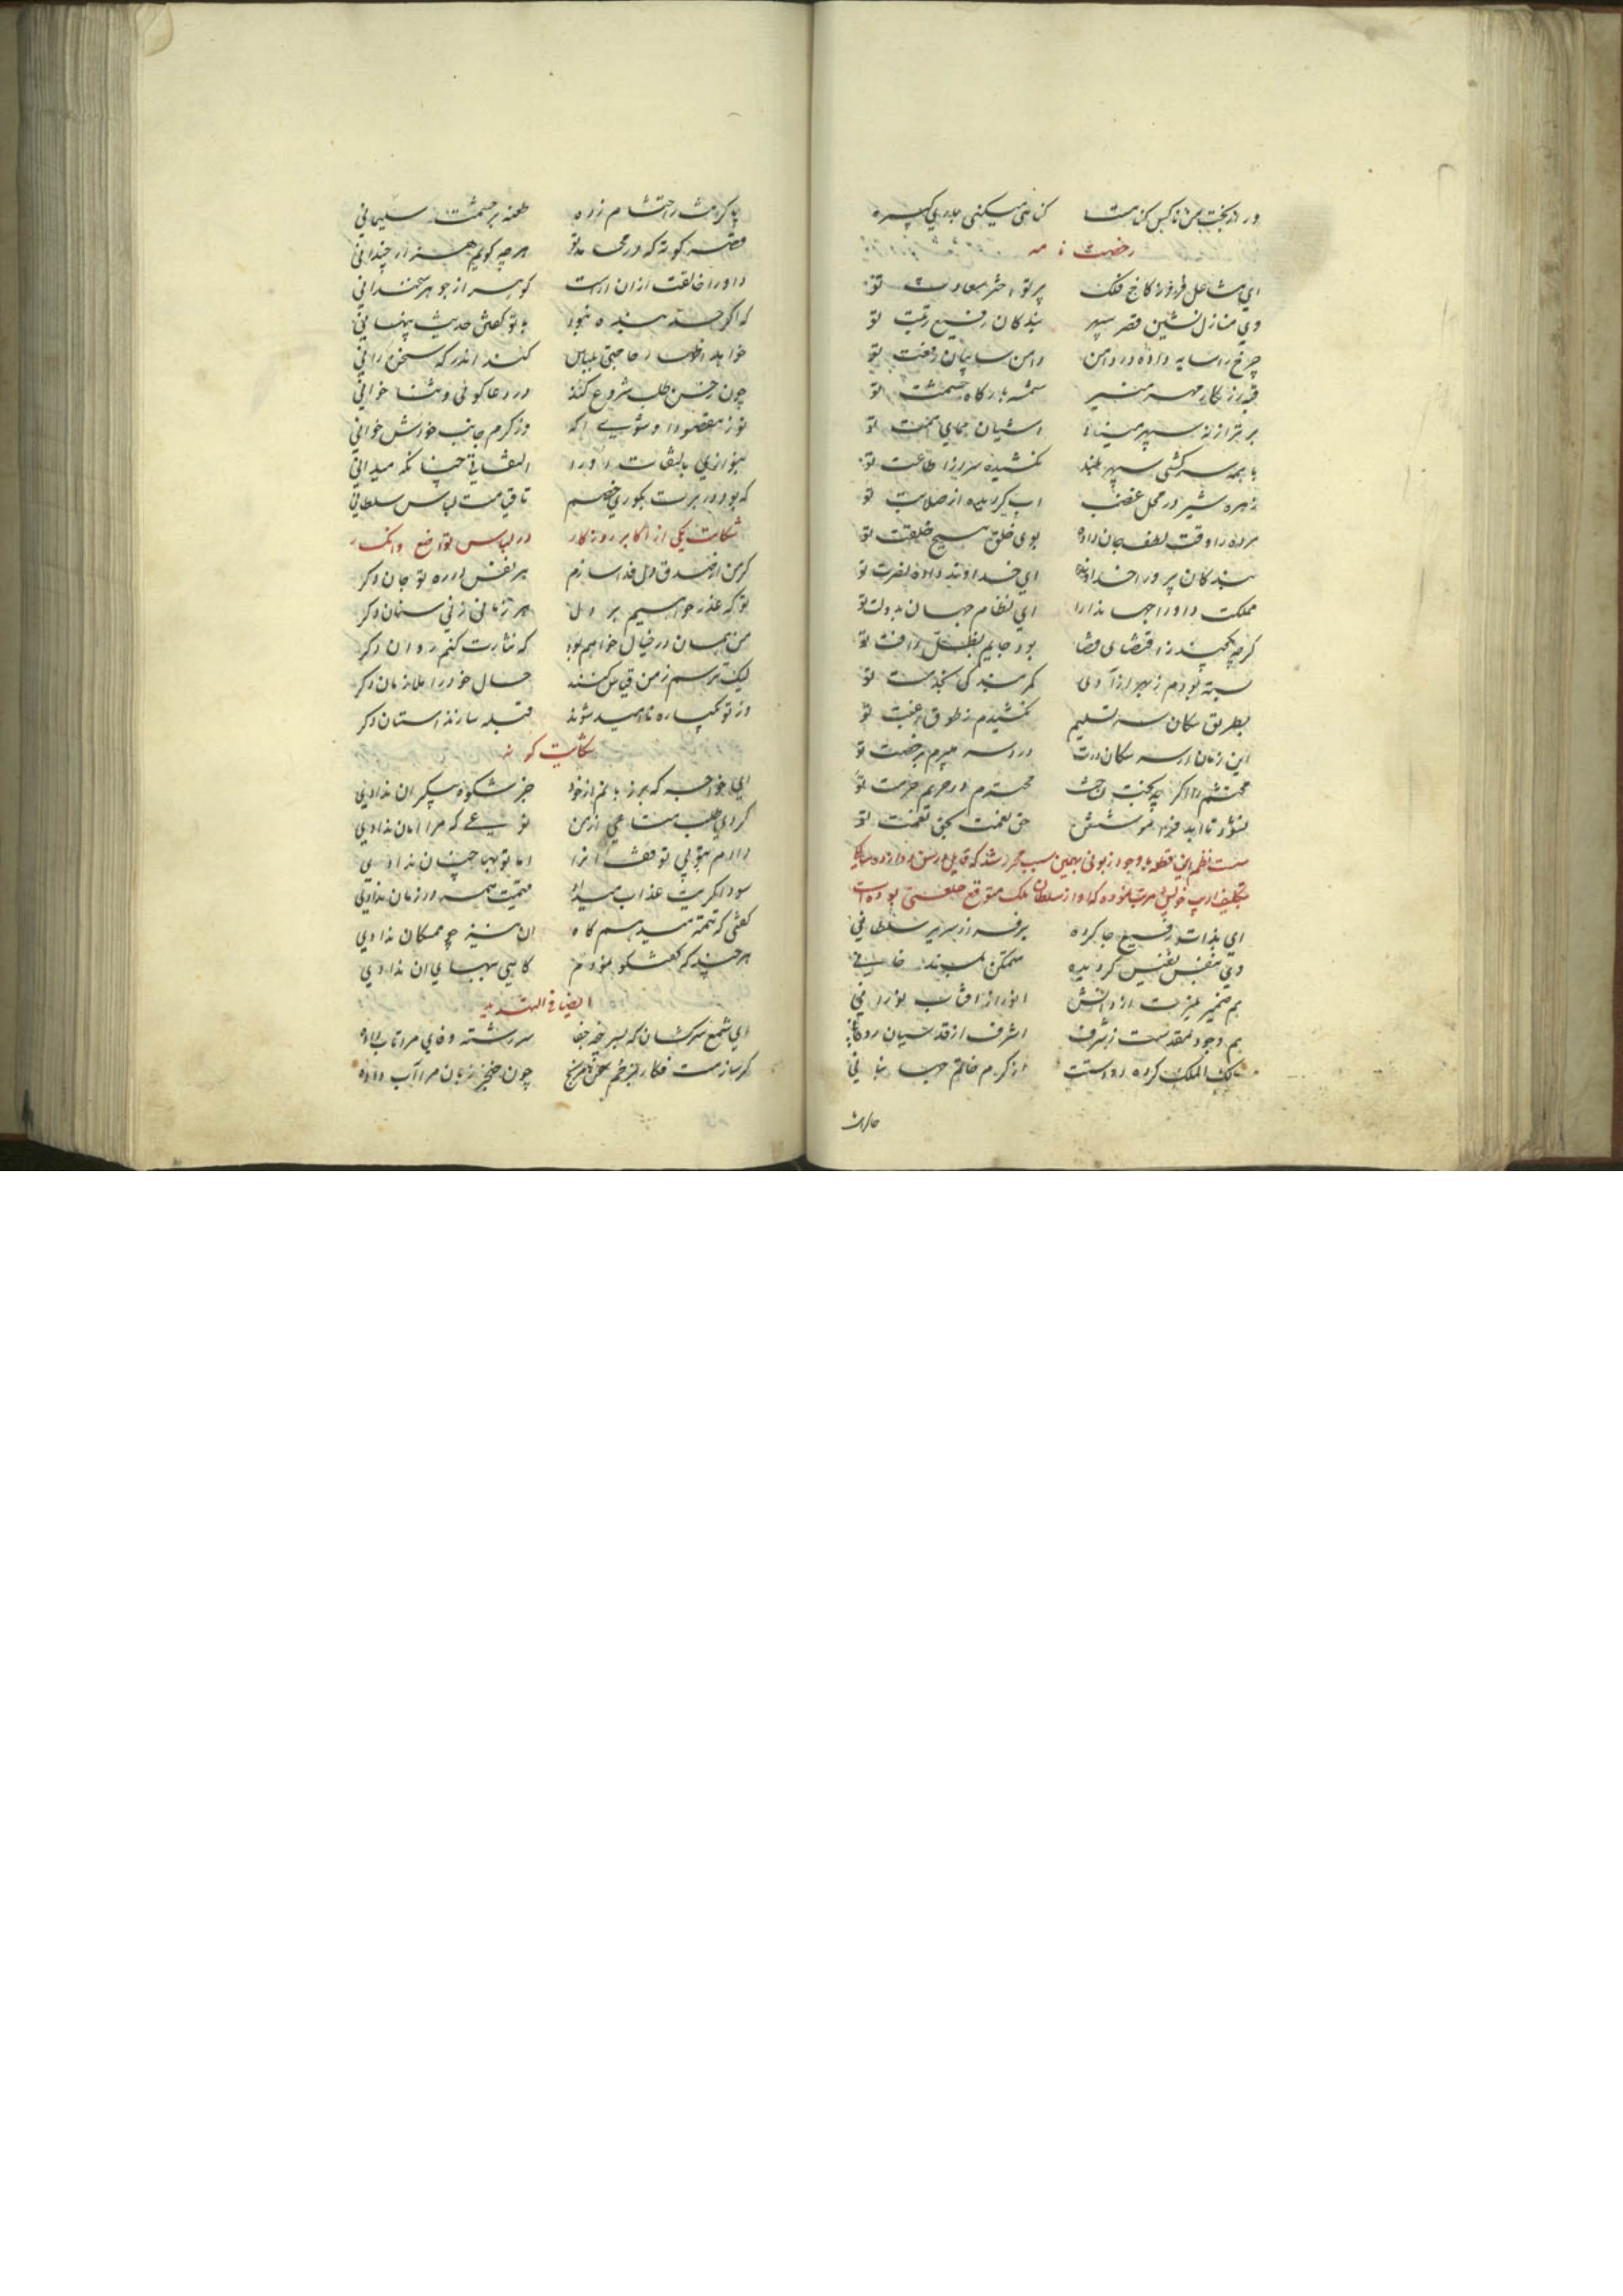 ور از بخت من ناکس کناهست کناهی میکنی بر دیگری
رخصت نامه
ای مشاعل فروز کاخ فلک پرتو اختر سعادت تو
وی منازل نشین قصر سپهر بندکان رفیع رتبت تو
چرخ را سایه داده در دامن دامن سایبان رفعت تو
قبه زرنکار مهر منیر شمسه بارکاه حشمت تو
برتر از نه سپهر مینا آشیان همای همت تو
با همه سرکشی سپهر بلند نکشیده سر از اطاعت تو
زهره شیر در محل غضب آب کردیده از صلابت تو
مرده را وقت لطف جان داده بوی خلق مسیح خلقت تو
بندکان پرور خداوندا ای خداوند داده نصرت تو
مملکت داورا جهاندارا ای نظام جهان بدولت تو
کرچه یکچند ز اقتضای قضا بود جایم بظل رافت تو
بسته بودم ز بهر آزادی کمر بندکی بخدمت تو
بطریق سکان سر تسلیم نکشیدم ز طوق رغبت تو
این زمان از سر سکان درت درد سر میبرم برخصت تو
محتشم را اکر چه بخت نداشت محترم در حریم حرمت تو
نشود تا ابد فراموشش حق نعمت بحق نعمت تو
نظم این قطعه با وجود زبونی بهمین سبب محرر شد که قایل در سن دوازده سالکی
بتکلیف ادب خویش مرتب نموده که او از سلطان ملک متوقع خلعتی بوده است
ای بذات رفیع جا کرده برفراز سریر سلطانی
وی بنفس نفیس کردیده متمکن بمسند خانی
هم ضمیر منیرت از دانش انور از آفتاب نورانی
هم وجود مقدست ز شرف اشرف از قدسیان روحانی
مالک الملک کرده در دستت از کرم خاتم جهانبانی
پایه کرسیت احتشام زده طعنه بر حشمت سلیمانی
قصه کوته که در محامد تو هرچه کویم هزار چندانی
داورا خالقت از آن آراست کوهر از جوهر سخندانی
که اکر خسته بنده نبود با تو کفتن حدیث پنهانی
خواهد اظهار حاجتی بلباس کند اندر که سخن رانی
چون بحسن طلب شروع کند در دعا کوئی و ثنا خوانی
تو ز مقصود او شوی آکه وز کرم جانب خودش خوانی
بنوازی بالتفات او را التفاتی چنانکه میدانی
که بود در برت بکوری خصم تا قیامت لباس سلطانی
شکایت یکی از اکابر روزکار در لباس تواضع و انکسار
کر من از صدق دل فدا سازم هر نفس در ره تو جان دکر
تو که عذر خواهیم بر دل هر زمانی زنی سنان دکر
من همان در خیال خواهم بود که نثارت کنم روان دکر
لیک ترسم ز من قیاس کنند حال خود را ملازمان دکر
وز تو یکباره ناامید شوند قبله سازند آستان دکر
شکایت کونه
ای خواجه که برز بانم از خود جز شکوه بیکران ندادی
کردی طلب متاعی از من نوعی که مرا امان ندادی
دادم بتو بی توقف آن را اما تو بها چنان ندادی
سوداکریت عذاب میداد قیمت همه در زمان ندادی
کفتی که تتمه میدهم کاه آن نیز چو ممسکان ندادی
هر چند که کفتکو نمودم کاهی ببهای آن ندادی
ایضا فی التهدید
ای شمع سرکشان که بسرپنجه جفا سر رشته وفای مرا تاب داده
کر سازمت فکار بزخم سخن مرنج چون خنجر زبان مرا آب داده